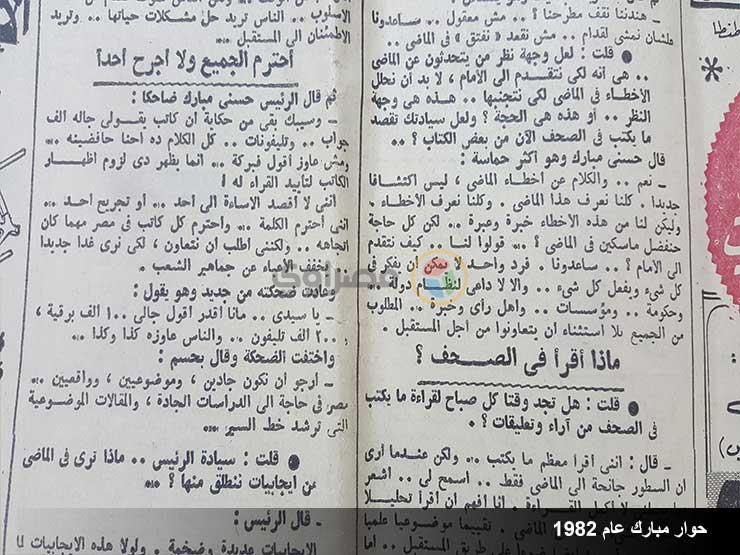 – هندننا نقف مطرحنا ؟ .. مش معقول .. ساعدونا
علشان نمشى لقدام .. مش نقعد « نفتق » فى الماضى ..
● قلت : لعل وجهة نظر من يتحدثون عن الماضى
.. هى أنه لكى نتقدم الى الأمام ، لا بد أن نحلل
الأخطاء فى الماضى لكى نتجنبها .. هذه هى وجهة
النظر .. أو هذه هى الحجة ؟ ولعل سيادتك تقصد
ما يكتب فى الصحف الآن من بعض الكتاب ؟ ..
قال حسنى مبارك وهو أكثر حماسة :
– نعم .. والكلام عن أخطاء الماضى ، ليس اكتشافا
جديدا . كلنا نعرف هذا الماضى . وكلنا نعرف الأخطاء .
وليكن لنا من هذه الأخطاء خبرة وعبرة .. لكن كل حاجة
حنفضل ماسكين فى الماضى ؟ .. قولوا لنا .. كيف نتقدم
الى الأمام ؟ .. ساعدونا . فرد واحد لا يمكن أن يفكر فى
كل شىء ويفعل كل شىء .. والا لا داعى لنظام دولة
وحكومة .. ومؤسسات .. وأهل رأى وخبرة .. المطلوب
من الجميع بلا استثناء أن يتعاونوا من أجل المستقبل .
ماذا أقرأ فى الصحف ؟
● قلت : هل تجد وقتا كل صباح لقراءة ما يكتب
فى الصحف من آراء وتعليقات ؟ ..
– قال : اننى أقرأ معظم ما يكتب .. ولكن عندما أرى
أن السطور جانحة الى الماضى فقط .. اسمح لى .. أشعر
القراءة .. أنا أفهم أن أقرأ تحليلا
تقييما موضوعيا علميا
على طريق المستقبل ..
الأسلوب .. الناس تريد حل مشكلات حياتها .. وتريد
الاطمئنان الى المستقبل .
احترم الجميع ولا اجرح احدا
ثم قال الرئيس حسنى مبارك ضاحكا :
– وسيبك بقى من حكاية أن كاتب يقولى جاله ألف
جواب .. وتليفونات .. كل الكلام ده احنا حافضينه ..
ومش عاوز أقول فبركة .. انما يظهر دى لزوم اظهار
الكاتب لتأييد القراء له !
اننى لا أقصد الاساءة الى أحد .. أو تجريح أحد ..
اننى أحترم الكلمة .. واحترم كل كاتب فى مصر مهما كان
اتجاهه .. ولكننى أطلب أن نتعاون ، لكى نرى غدا جديدا
نخفف الأعباء عن جماهير الشعب .
وعادت ضحكته من جديد وهو يقول :
– يا سيدى .. مانا أقدر أقول جالى ١٠٠ ألف برقية ،
و ٢٠٠ ألف تليفون .. والناس عاوزه كذا وكذا ..
واختفت الضحكة وقال بحسم :
– أرجو أن نكون جادين ، وموضوعيين ، وواقعيين ..
مصر فى حاجة الى الدراسات الجادة ، والمقالات الموضوعية
التى ترشد خط السير ..
● قلت : سيادة الرئيس .. ماذا نرى فى الماضى
من ايجابيات ننطلق منها ؟ ..
– قال الرئيس :
الايجابيات عديدة وضخمة .. ولولا هذه الايجابيات لما
مصراوى
حوار مبارك عام 1982